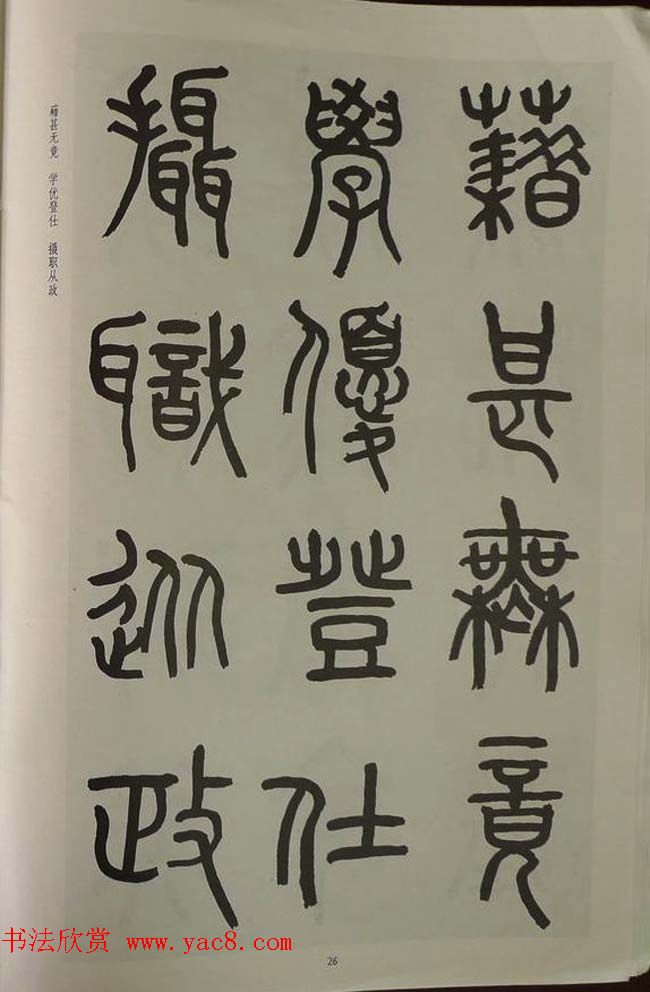 藉甚無竟
學優登仕
攝職從政
藉甚无竟 学优登仕 摄职从政
书法欣赏 www.yac8.com
26